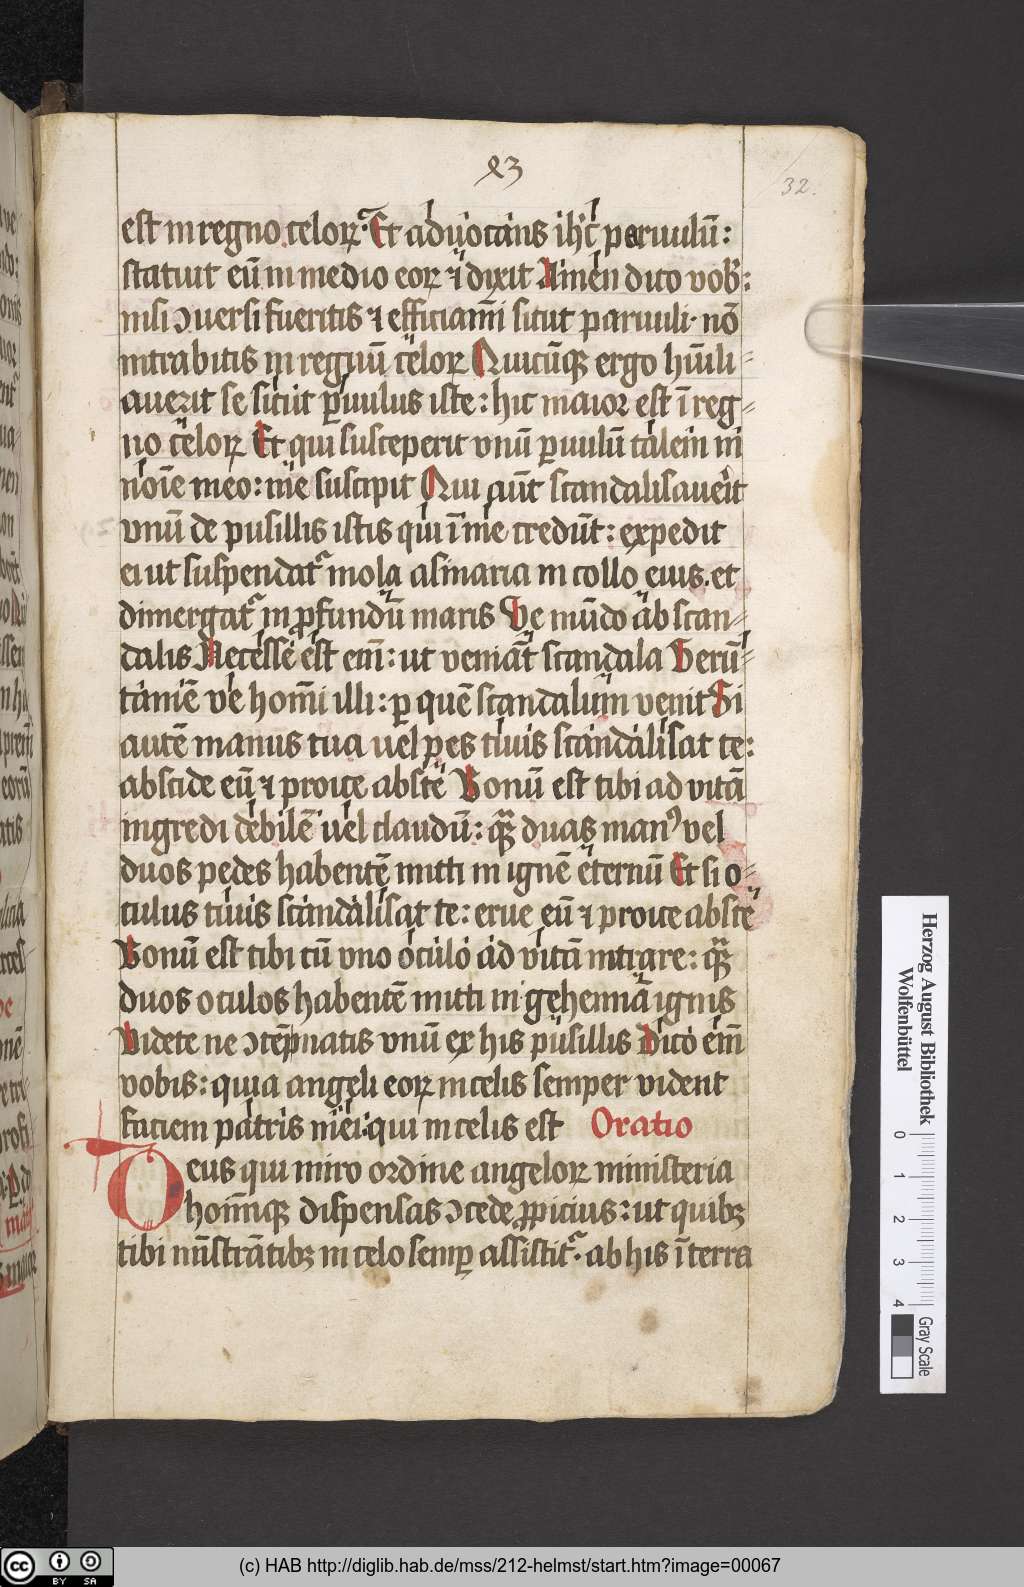 ɤ3
32.
est in regno celoꝝ. Et aduocans ih̄c paruulū:
statuit eū in medio eoꝝ ⁊ dixit Amen dico vob̄:
nisi ↄuersi fueritis ⁊ efficiam̄i sicut paruuli· nō
intrabitis in regnū celoꝝ Quicūqꝫ ergo hūili-
auerit se sicut ꝑuulus iste: hic maior est ī reg-
no celoꝝ Et qui susceperit vnū ꝑuulū talem in
noīe meo: me suscipit Qui aūt scandalisauerit
vnū de pusillis istis qui ī me credūt: expedit
ei ut suspendat᷑ mola asinaria in collo eius. et
dimergat᷑ in ꝓfundū maris Ve mūdo ab scan-
dalis Necesse est em̄: ut veniāt scandala Verū-
tamē ve hom̄i illi: ꝑ quē scandalum venit Si
autē manus tua uel pes tuus scandalisat te:
abscide eū ⁊ proice abs te Bonū est tibi ad vitā
ingredi debilē uel claudū: qꝫ̄ duas manꝰ vel
duos pedes habentē mitti in ignē eternū Et si o-
culus tuus scandalisat te: erue eū ⁊ proice abs te
Bonū est tibi cū vno oculo ad vitā intrare: qꝫ̄
duos oculos habentē mitti in gehennā ignis
Videte ne ↄtēpnatis vnū ex his pusillis Dico em̄
vobis: quia angeli eoꝝ in celis semper vident
faciem patris mei: qui in celis est Oratio
Deus qui miro ordine angeloꝝ ministeria
hoīmqꝫ dispensas ↄcede ꝓpicius: ut quibꝫ
tibi mīstrātibꝫ in celo semꝑ assistit᷑. ab his ī terra
Herzog August Bibliothek
Wolfenbüttel
0 1 2 3 4
Gray Scale
cc BY SA
(c) HAB http://diglib.hab.de/mss/212-helmst/start.htm?image=00067